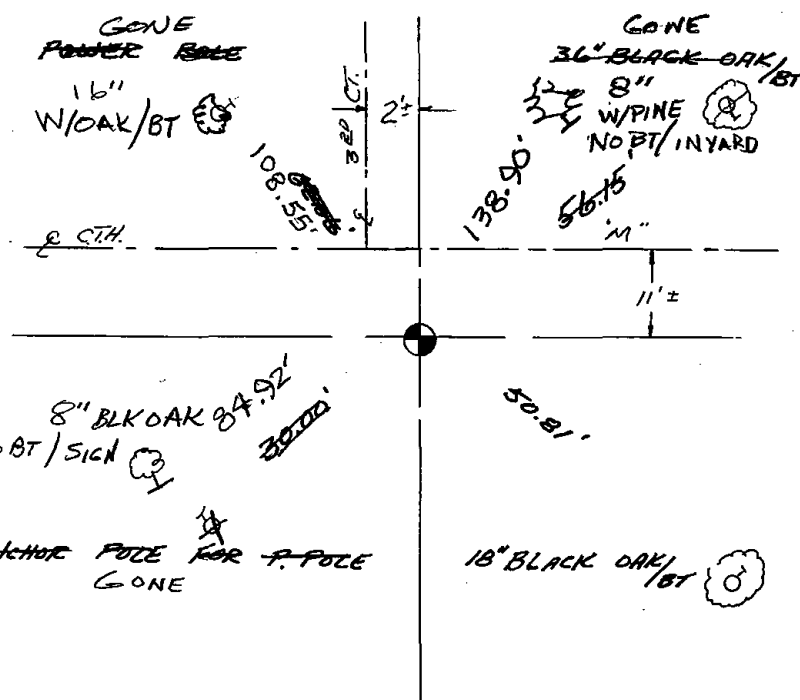 GONE
POWER POLE
16"
W/OAK/BT
108.55'
3RD CT.
2'±
GONE
36" BLACK OAK/BT
8"
W/PINE
NO BT/INYARD
138.90'
56.15'
"M"
℄ C.T.H.
11'±
84.92'
8" BLK OAK
BT/SIGN
30.00'
50.81'
POLE FOR P. POLE
GONE
18" BLACK OAK/BT